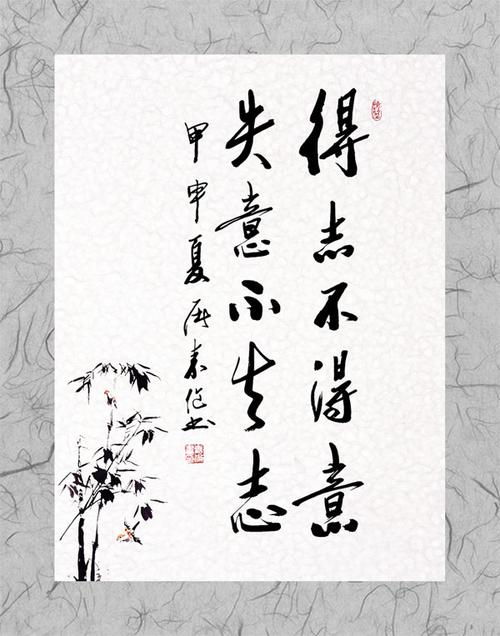 得志不得意
失意不失志
甲申夏
书